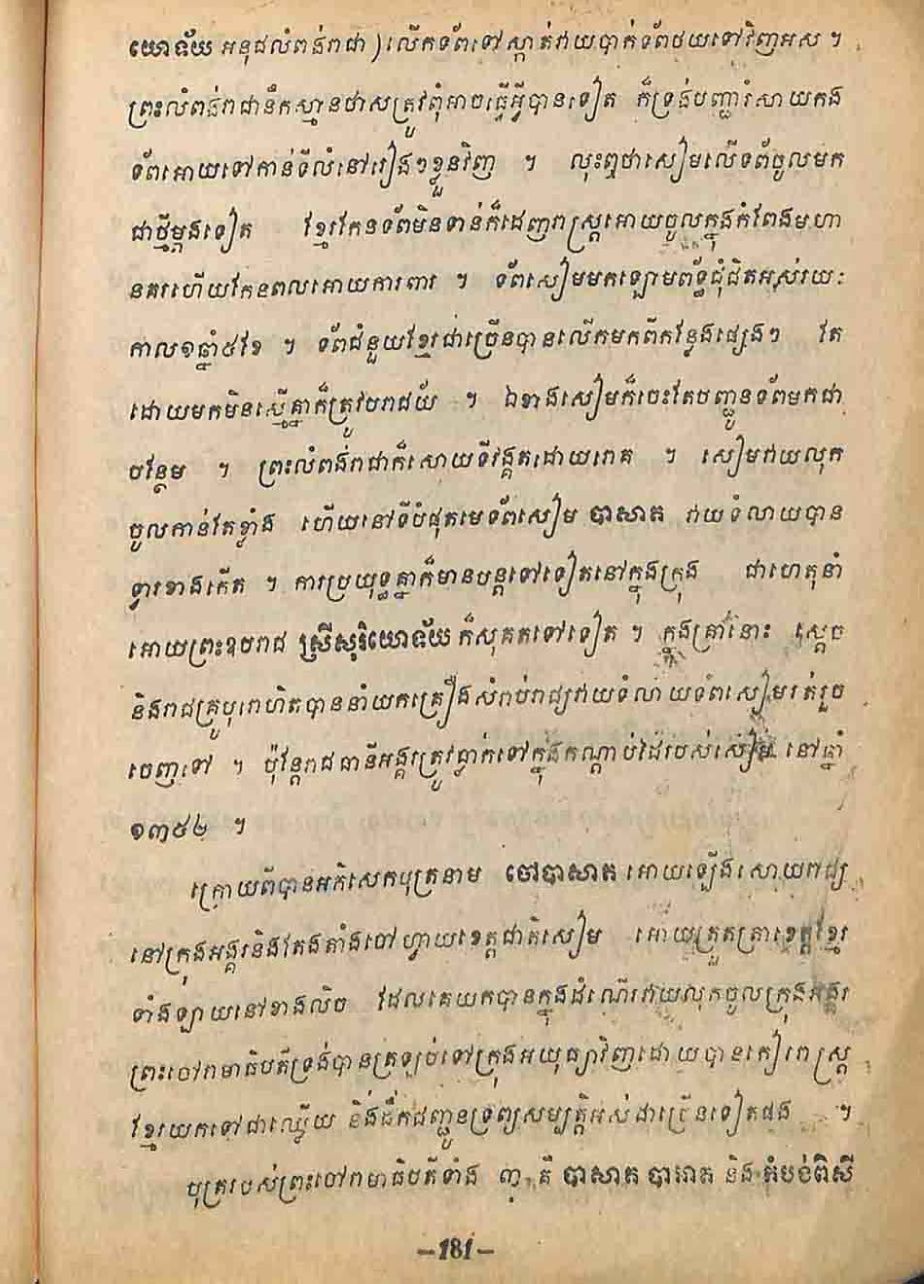 យោទ័យ អនុជលំពង់រាជា ) លើកទ័ពទៅស្កាត់វាយបាក់ទ័ពថយទៅវិញអស ។
ព្រះលំពង់រាជានឹកស្មានថាសត្រូវពុំអាចធ្វើអ្វីបានទៀត ក៏ទ្រង់បញ្ជារំសាយកង
ទ័ពអោយទៅកាន់ទីលំនៅរៀងៗខ្លួនវិញ ។ លុះឮថាសៀមលើទព័ចូលមក
ជាថ្មីម្តងទៀត ខ្មែរកែនទ័ពមិនទាន់ក៏ដេញរាស្ត្រអោយចូលក្នុងកំពែងមហា
នគរហើយកែនពលអោយការពារ ។ ទ័ពសៀមមកឡោមព័ទ្ធជុំជិតអស់រយៈ
កាល១ឆ្នាំ៥ខែ ។ ទ័ពជំនួយខ្មែរជាច្រើនបានលើកមកពីកន្លែងផ្សេងៗ តែ
ដោយមកមិនស្មើគ្នាក៏ត្រូវបរាជយ័ ។ ឯខាងសៀមក៏ចេះតែបញ្ជូនទ័ពមកជា
បន្ថែម ។ ព្រះលំពង់រាជាក៏សោយទីវង្គតដោយរោគ ។ សៀមវាយលុក
ចូលកាន់តែខ្លាំង ហើយនៅទីបំផុតមេទ័ពសៀម បាសាត វាយទំលាយបាន
ទ្វារខាងកើត ។ ការប្រយុទ្ធគ្នាក៏មានបន្តទៅទៀតនៅក្នុងក្រុង ជាហេតុនាំ
អោយព្រះឧបរាជ ស្រីសុរិយោទ័យ ក៏សុគតទៅទៀត ។ ក្នុងគ្រានោះ ស្តេច
និងរាជគ្រូបុរោហិតបាននាំយកគ្រឿងសំរាប់រាជ្យវាយទំលាយទ័ពសៀមរត់រួច
ចេញទៅ ។ ប៉ុន្តែរាជធានីអង្គរត្រូវធ្លាក់ទៅក្នុងកណ្តាប់ដៃរបស់សៀម នៅឆ្នាំ
១៣៥២ ។
ក្រោយពីបានអភិសេកបុត្រនាម ចៅបាសាត អោយឡើងសោយរាជ្យ
នៅក្រុងអង្គរនិងតែងតាំងចៅហ្វាយខេត្តជាតិសៀម អោយត្រួតត្រាខេត្តខ្មែរ
ទាំងឡាយនៅខាងលិច ដែលគេយកបានក្នុងដំណើរវាយលុកចូលក្រុងអង្គរ
ព្រះចៅរាមាធិបតីទ្រង់បានត្រឡប់ទៅក្រុងអយុធ្យាវិញដោយបានកៀររាស្ត្រ
ខ្មែរយកទៅជាឈ្លើយ និងដឹកជញ្ជូនទ្រព្យសម្បត្តិអស់ជាច្រើនទៀតផង ។
បុត្ររបស់ព្រះចៅរាមាធិបតីទាំង ៣ គឺ បាសាត បាអាត និង កំបង់ពិសី
–181–